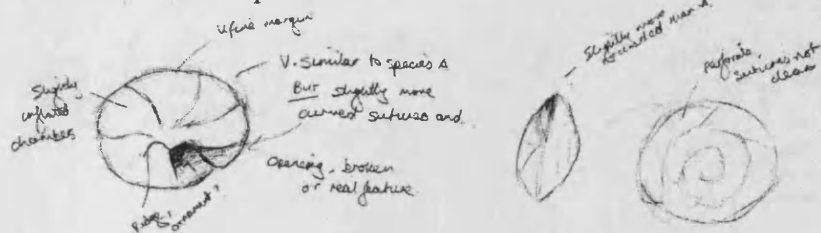 V. fine margin
Slightly
inflated
chambers
V. Similar to species A
BUT slightly more
curved sutures and
Opening, broken
or real feature
Ridge,
ornament?
Slightly more
rounded than A.
Perforate,
sutures not
clear